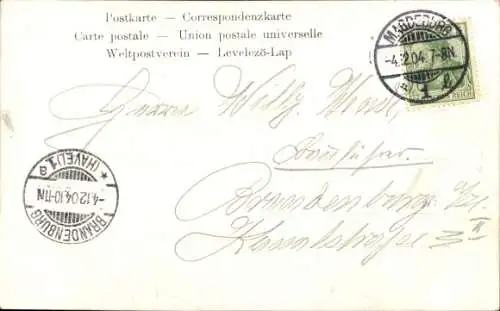 Postkarte — Correspondenzkarte
Carte postale — Union postale universelle
Weltpostverein — Levelező-Lap
MAGDEBURG
-4.12.04. 7-8N.
1
REICH
Herrn Willy
Brandenburg a/H.
BRANDENBURG
-4.12.04.10-11N.
* (HAVEL)1 a